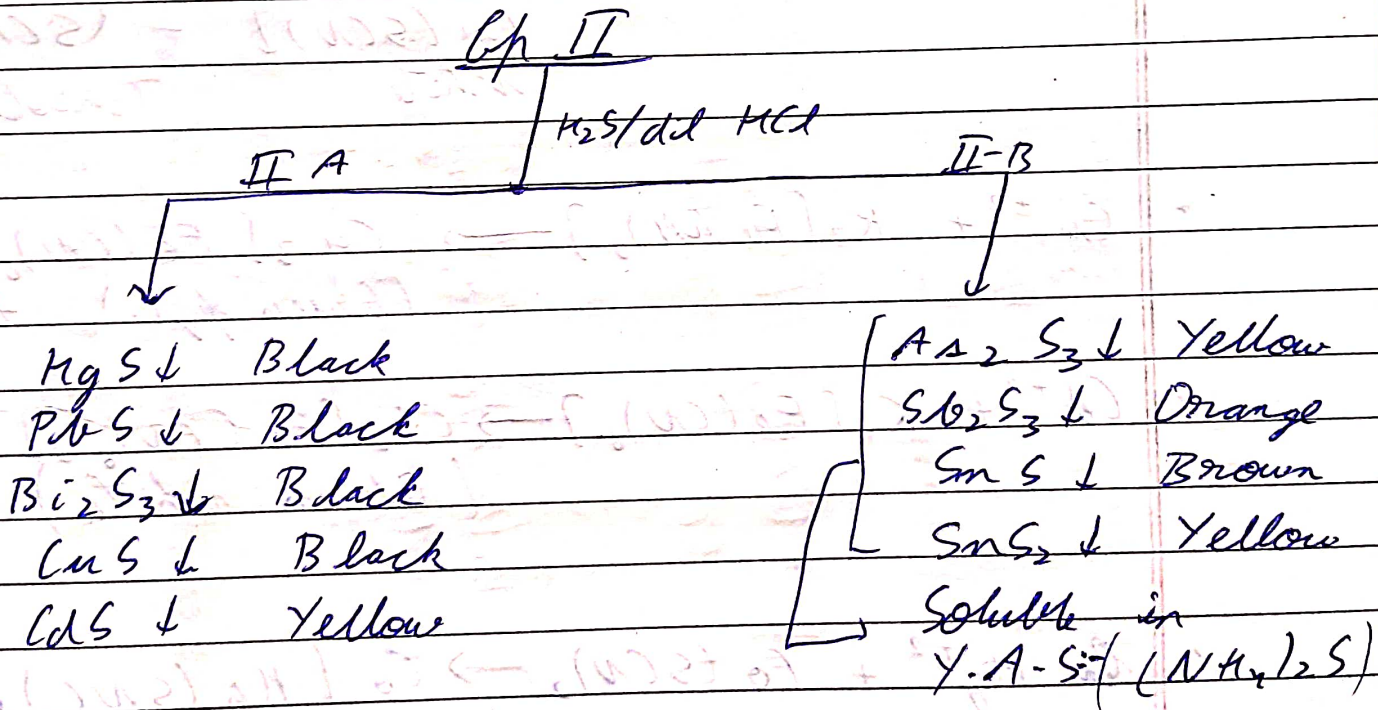 Gp II
H₂S/dil HCl
II A
II-B
HgS↓ Black
PbS↓ Black
Bi₂S₃↓ Black
CuS↓ Black
CdS↓ Yellow
As₂S₃↓ Yellow
Sb₂S₃↓ Orange
SnS↓ Brown
SnS₂↓ Yellow
Soluble in
Y.A-S:-( (NH₄)₂S)